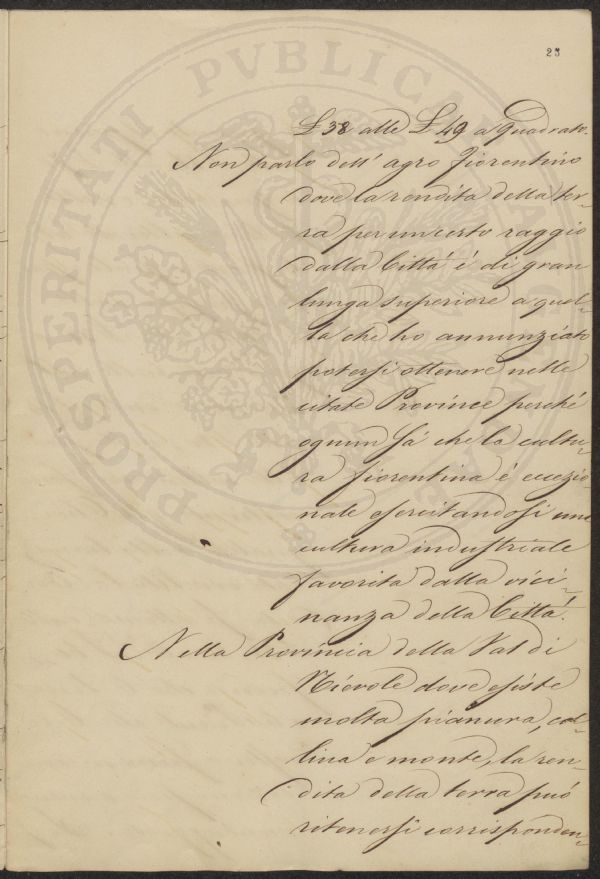 23
£ 38 alle £ 49 a Quadrato.
Non parlo dell' agro fiorentino
dove la rendita della ter=
ra per un certo raggio
dalla Città é di gran
lunga superiore a quel=
la che ho annunziato
potersi ottenere nelle
citate Province perché
ognun sá che la cultu=
ra fiorentina é eccezio
nale esercitandosi una
cultura industriale
favorita dalla vici=
nanza della Città.
Nella Provincia della Val di
Niévole dove esiste
molta pianura, col=
lina e monte, la ren=
dita della terra puó
ritenersi corrisponden=
PROSPERITATI PVBLICAE